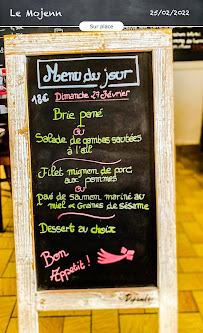 Le Mojenn
25/02/2022
Sur place
Menu du jour
18€ Dimanche 27 Février
Brie pané
ou
Salade de gambas sautées
à l'ail
Filet mignon de porc
aux pommes
ou
Pavé de saumon mariné au
miel et Graines de sésame
Dessert au choix
Bon
Appetit !